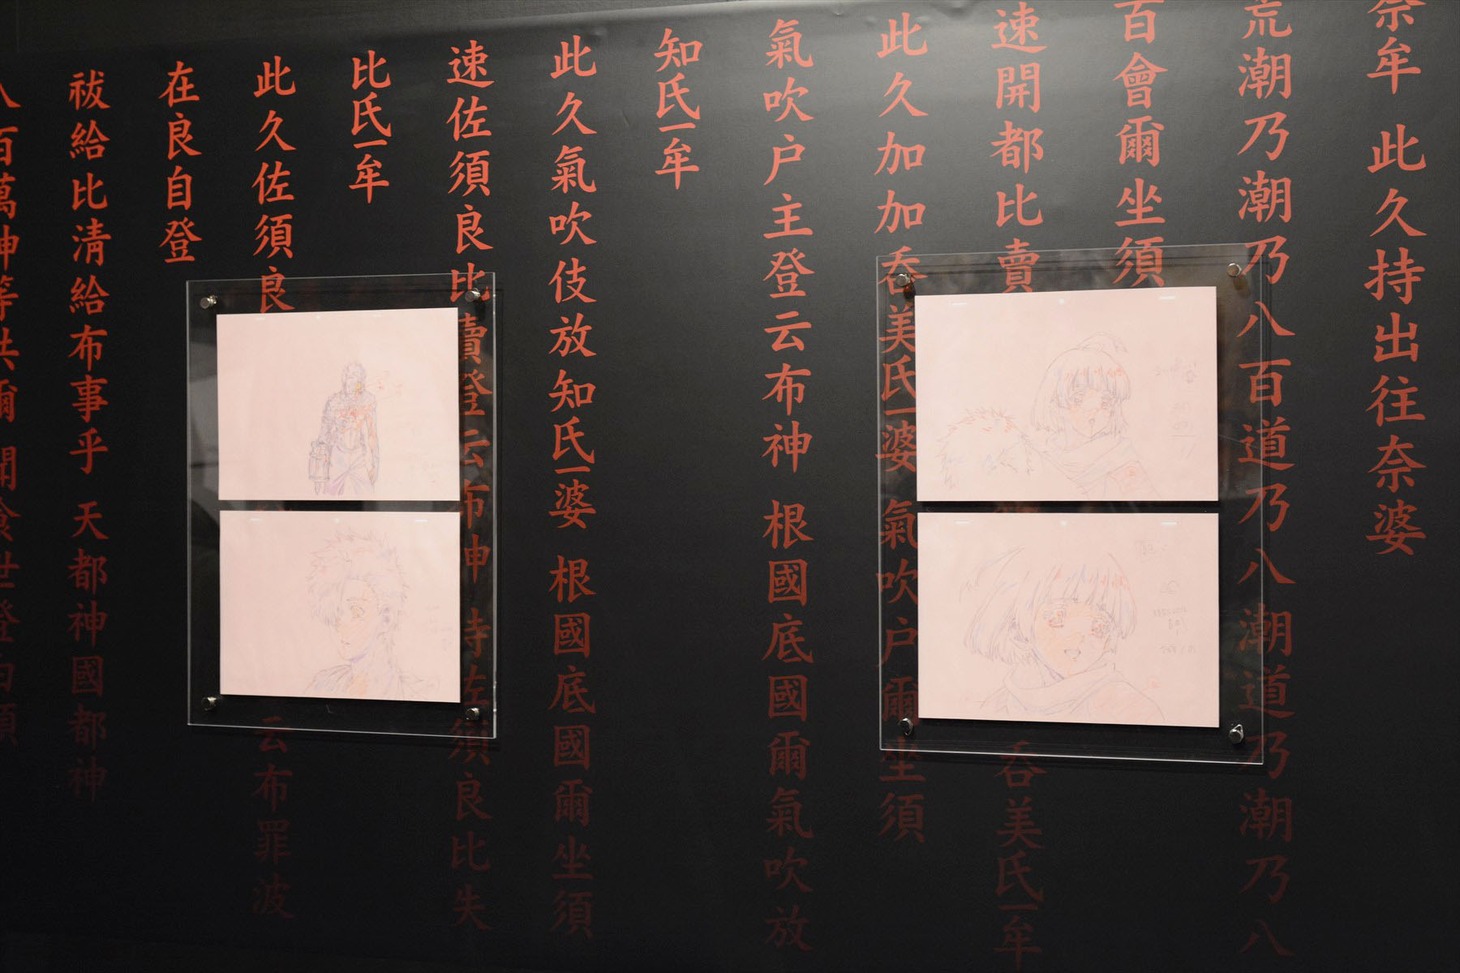 奈牟 此久持出往奈婆
荒潮乃潮乃八百道乃八潮道乃潮乃八
百會爾坐須
速開都比賣 呑美氐牟
此久加加呑美氐婆 氣吹户爾坐須
氣吹户主登云布神 根國底國爾氣吹放
知氐牟
此久氣吹伎放知氐婆 根國底國爾坐須
速佐須良比賣登云布神 持佐須良比失
比氐牟
此久佐須良 云布罪波
在良自登
祓給比清給布事乎 天都神國都神
八百萬神等共爾 聞食世登白須